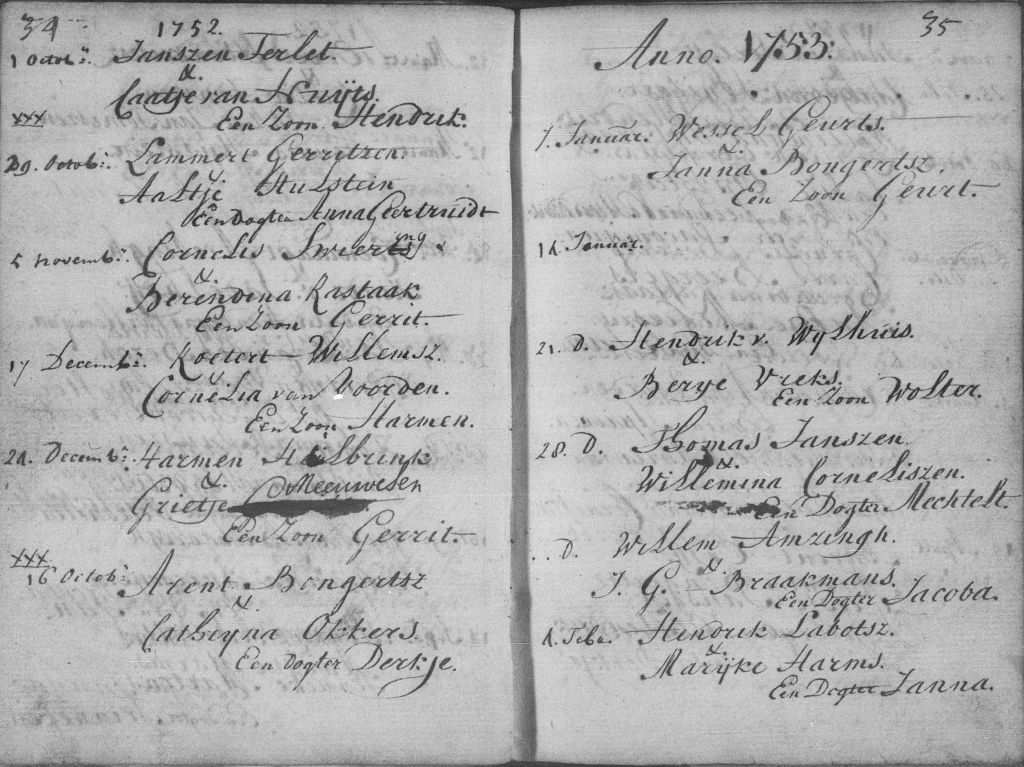 34
1752.
1 Octobr. Janszen Terlet.
&
Caatje van Huijts.
Een Zoon. Hendrik.
XXX
29. Octobr. Lammert Gerrytzen.
&
Aaltje Hulstein
Een Dogter Anna Geertruidt
5 novembr. Cornelis Sweerts
&
Berendina Rastaak
Een Zoon Gerrit.
17 Decembr. Roetert Willemsz.
&
Cornelia van Voorden.
Een Zoon Harmen.
24. Decembr. Harmen Hilbrink
&
Grietje Meeuwesen
Een Zoon Gerrit.
XXX
16 Octobr. Arent Bongertsz
&
Cathryna Okkers.
Een Dogter Derkje.
35
Anno. 1753.
7. Januar. Wessel Geurts.
&
Janna Bongertsz.
Een Zoon Geurt.
14 Januar.
21. D. Hendrik v. Wylhuis.
&
Berye Vreks.
Een Zoon Wolter.
28. D. Thomas Janszen.
&
Willemina Corneliszen.
Een Dogter Mechtelt.
D. Willem Amzingh.
&
J. G. Braakmans.
Een Dogter Jacoba.
4. Feb. Hendrik Labotsz.
&
Marijke Harms.
Een Dogter Janna.